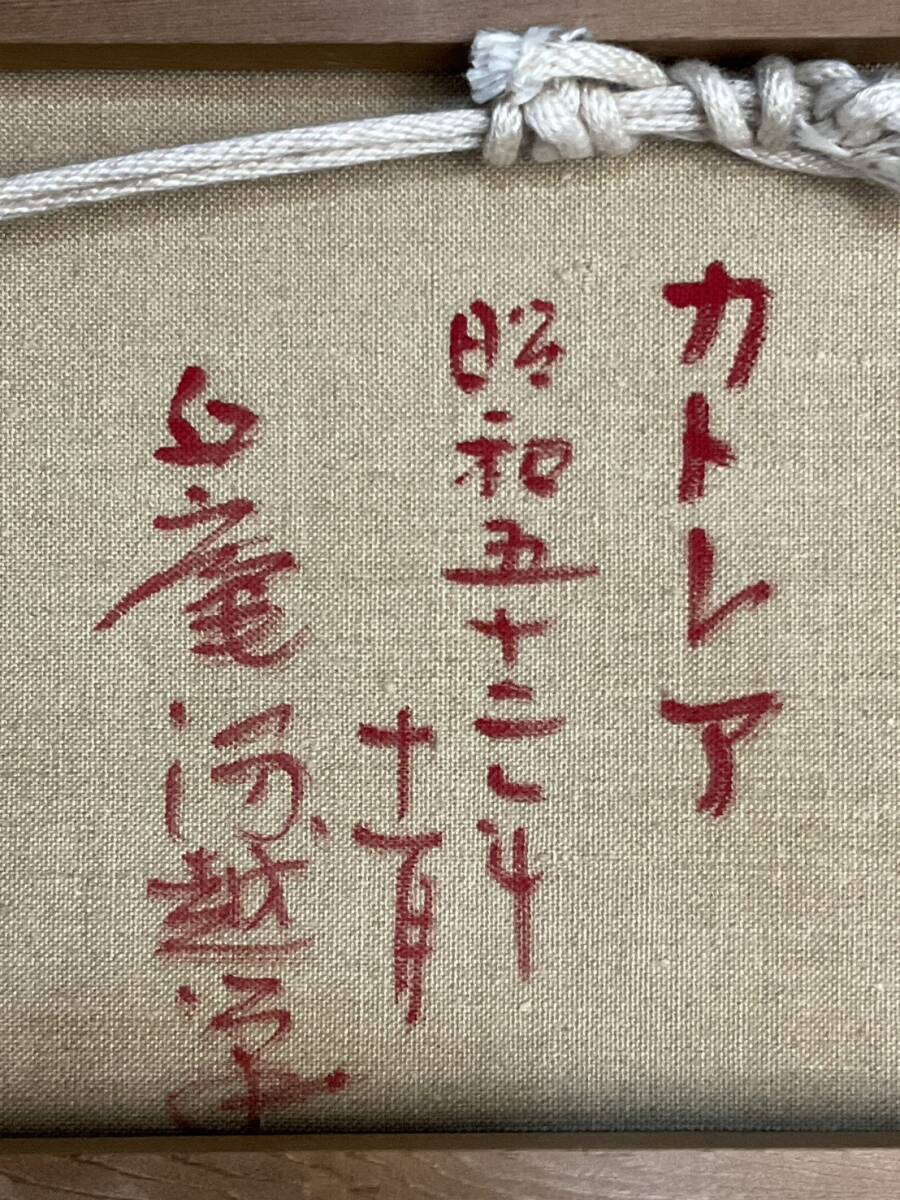 カトレア
昭和五十二年
十一月
丘庵 河越